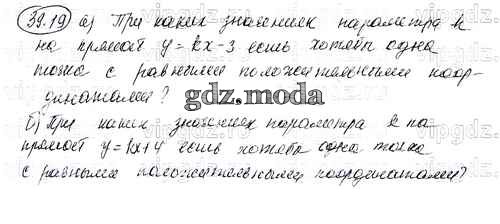 39.19 а) При каких значениях параметра k
на прямой y = kx - 3 есть хотя бы одна
точка с равными положительными коор-
динатами?
gdz.moda
б) При каких значениях параметра k на
прямой y = kx + 4 есть хотя бы одна точка
с равными положительными координатами?